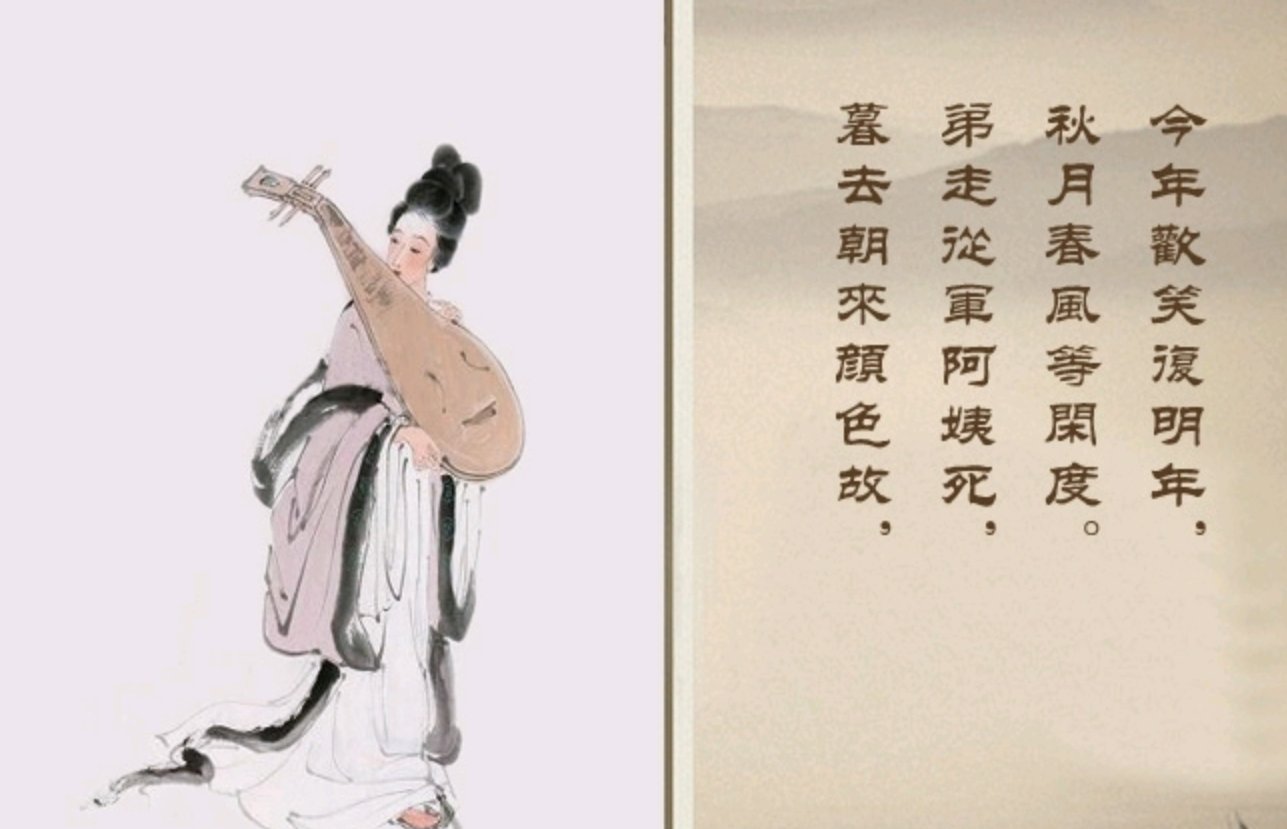 今年歡笑復明年，
秋月春風等閑度。
弟走從軍阿姨死，
暮去朝來顔色故，